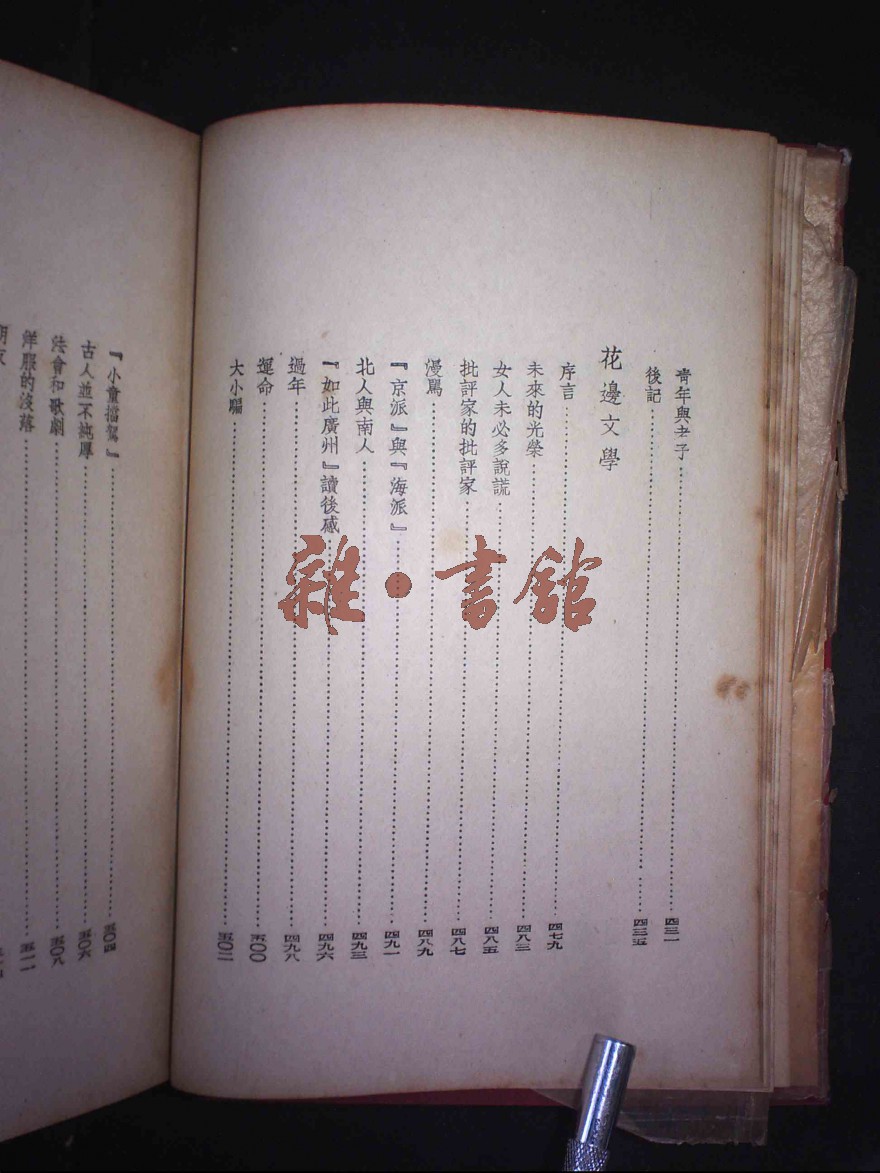 青年與老子……四三一
後記……四三五
花邊文學
序言……四七九
未來的光榮……四八三
女人未必多說謊……四八五
批評家的批評家……四八七
漫罵……四八九
『京派』與『海派』……四九一
北人與南人……四九三
『如此廣州』讀後感……四九六
過年……四九八
運命……五〇〇
大小騙……五〇二
『小童擋駕』……五〇四
古人並不純厚……五〇六
法會和歌劇……五〇八
洋服的沒落……五一一
朋友
雜·書館